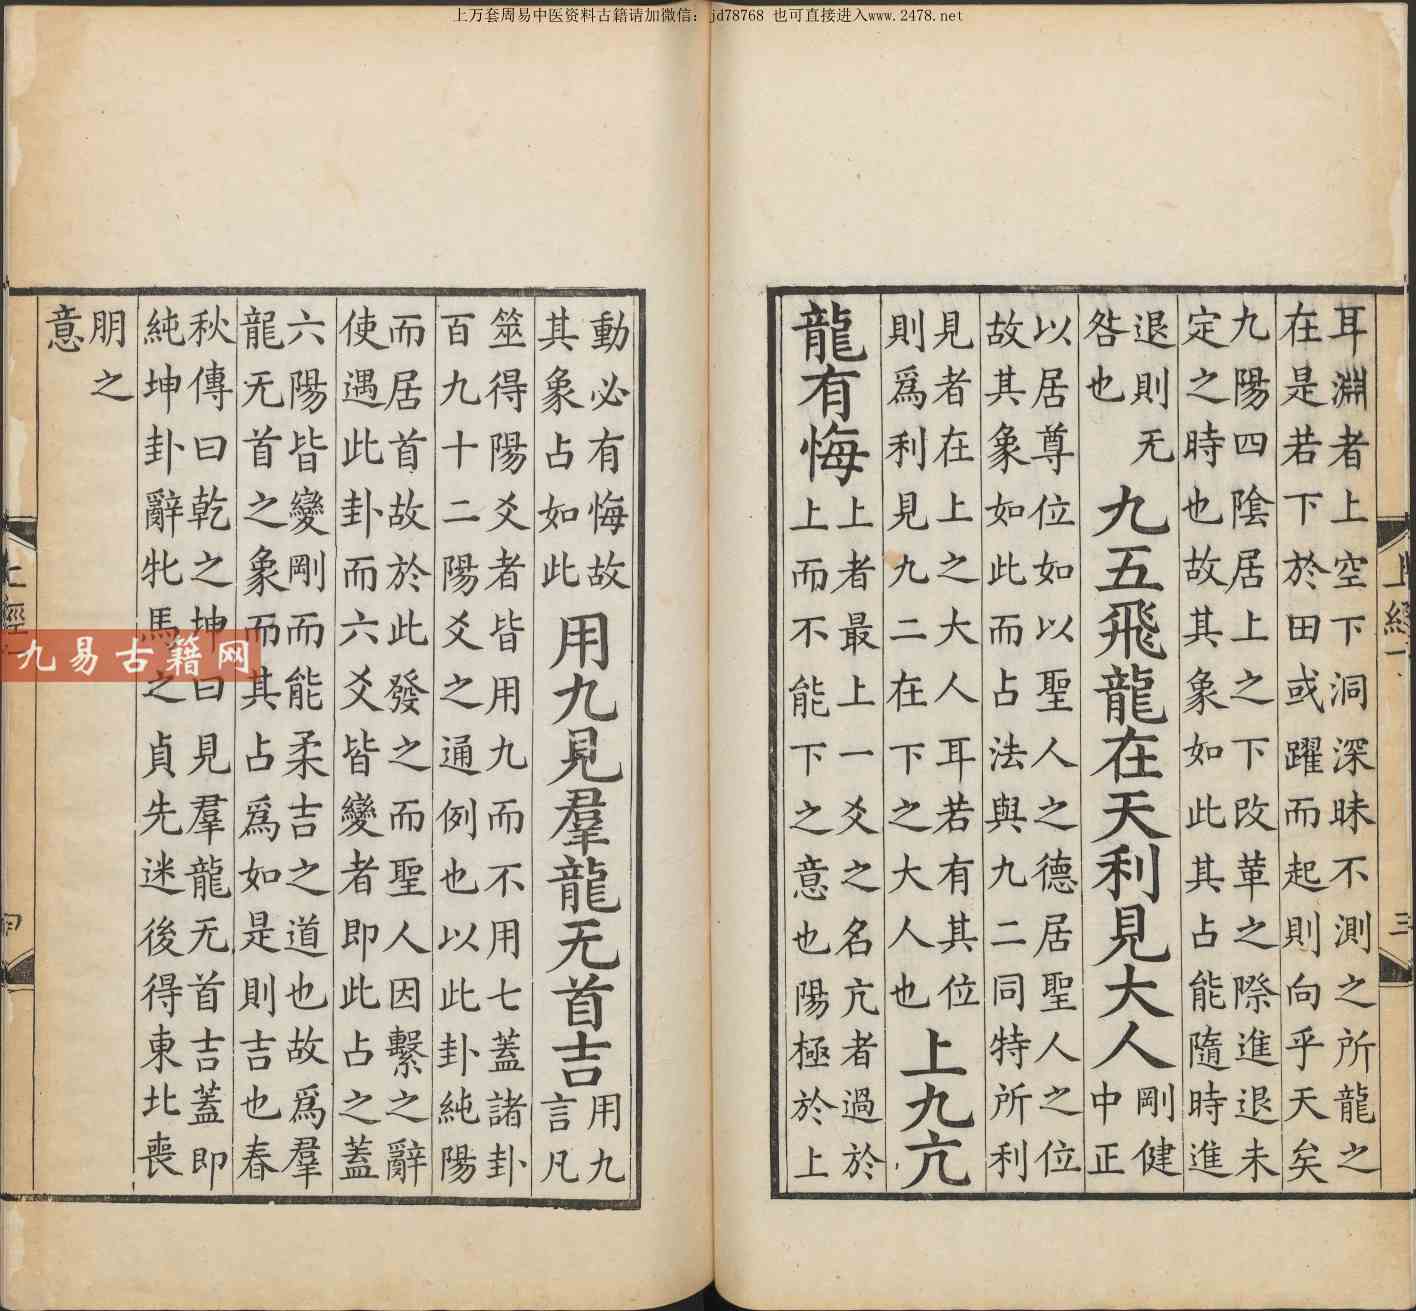 上万套周易中医资料古籍请加微信：jd78768 也可直接进入www.2478.net
耳淵者上空下洞深昧不測之所龍之
在是若下於田或躍而起則向乎天矣
九陽四陰居上之下改革之際進退未
定之時也故其象如此其占能隨時進
退則无
咎也
九五飛龍在天利見大人
剛健
中正
以居尊位如以聖人之德居聖人之位
故其象如此而占法與九二同特所利
見者在上之大人耳若有其位
則爲利見九二在下之大人也
上九亢
龍有悔
上者最上一爻之名亢者過於
上而不能下之意也陽極於上
動必有悔故
其象占如此
用九見羣龍无首吉
用九
言凡
筮得陽爻者皆用九而不用七蓋諸卦
百九十二陽爻之通例也以此卦純陽
而居首故於此發之而聖人因繫之辭
使遇此卦而六爻皆變者即此占之蓋
六陽皆變剛而能柔吉之道也故爲羣
龍无首之象而其占爲如是則吉也春
秋傳曰乾之坤曰見羣龍无首吉蓋即
純坤卦辭牝馬之貞先迷後得東北喪
朋之
意
上經一
三
九易古籍网